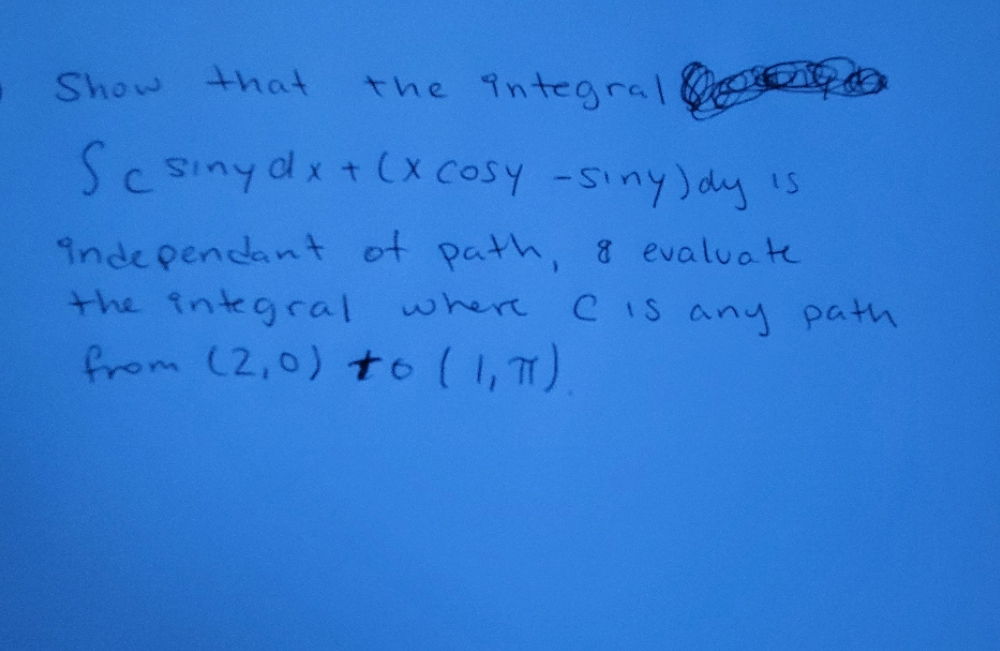 Show that the integral
∫c siny dx + (x cosy - siny)dy is
independant of path, & evaluate
the integral where C is any path
from (2,0) to (1,π).